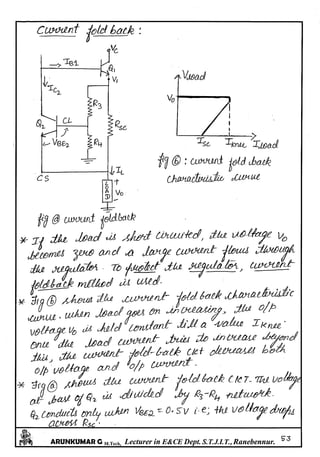 Current fold back :
Vc
→ IB1
Q1
V1
↓IC2
R3
Q2
CL
RSC
VBE2
R4
↓IL
CS
LOAD
+
Vo
-
VLoad
Vo
ISC IKnee ILoad
fig ⓑ : current fold back
characteristic curve
fig ⓐ current foldback
* If the load is short circuited, the voltage Vo
becomes zero and a large current flows through
the regulator. To protect the regulator, current
foldback method is used.
* Fig ⓑ shows the current fold back characteristic
curve. when load goes on increasing, the o/p
voltage Vo is held constant till a value IKnee.
once the load current tries to increase beyond
this, the current fold-back ckt decreases both
o/p voltage and o/p current.
* Fig ⓐ shows the current fold back CKT. The voltage
at base of Q2 is divided by R3-R4 network.
Q2 conducts only when VBE2 = 0.5V i.e; the voltage drops
across RSC.
ARUNKUMAR G M.Tech, Lecturer in E&CE Dept. S.T.J.I.T., Ranebennur. 53